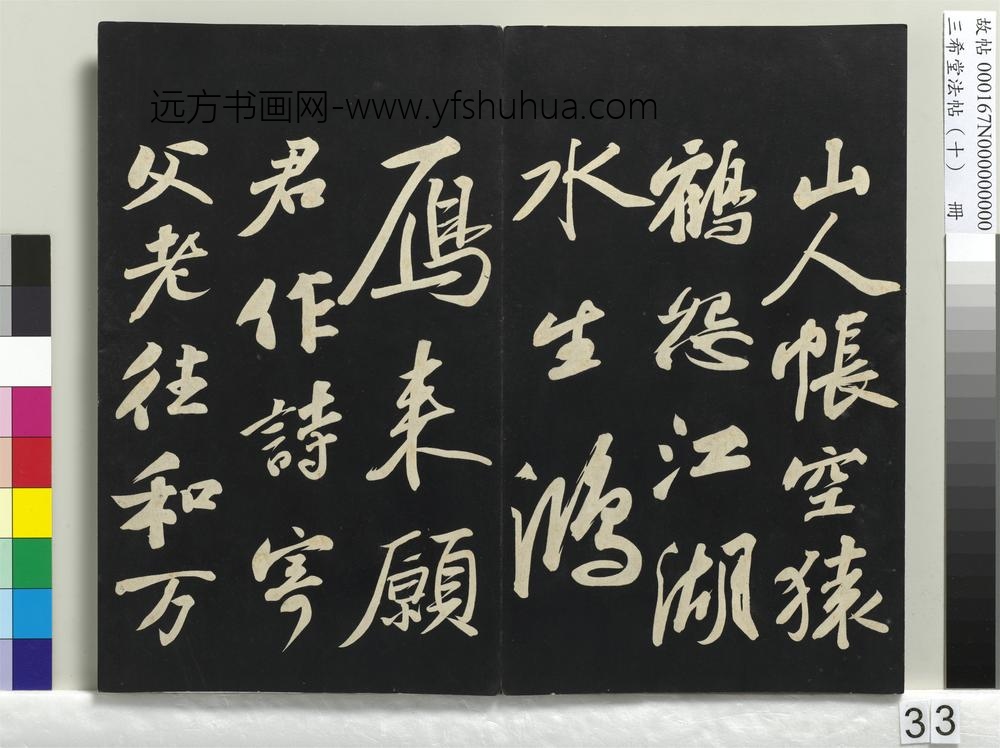 远方书画网-www.yfshuhua.com
山人帳空猿
鶴怨江湖
水生鴻
鴈来願
君作詩寄
父老往和万
故帖 000167N000000000
三希堂法帖（十） 冊
33